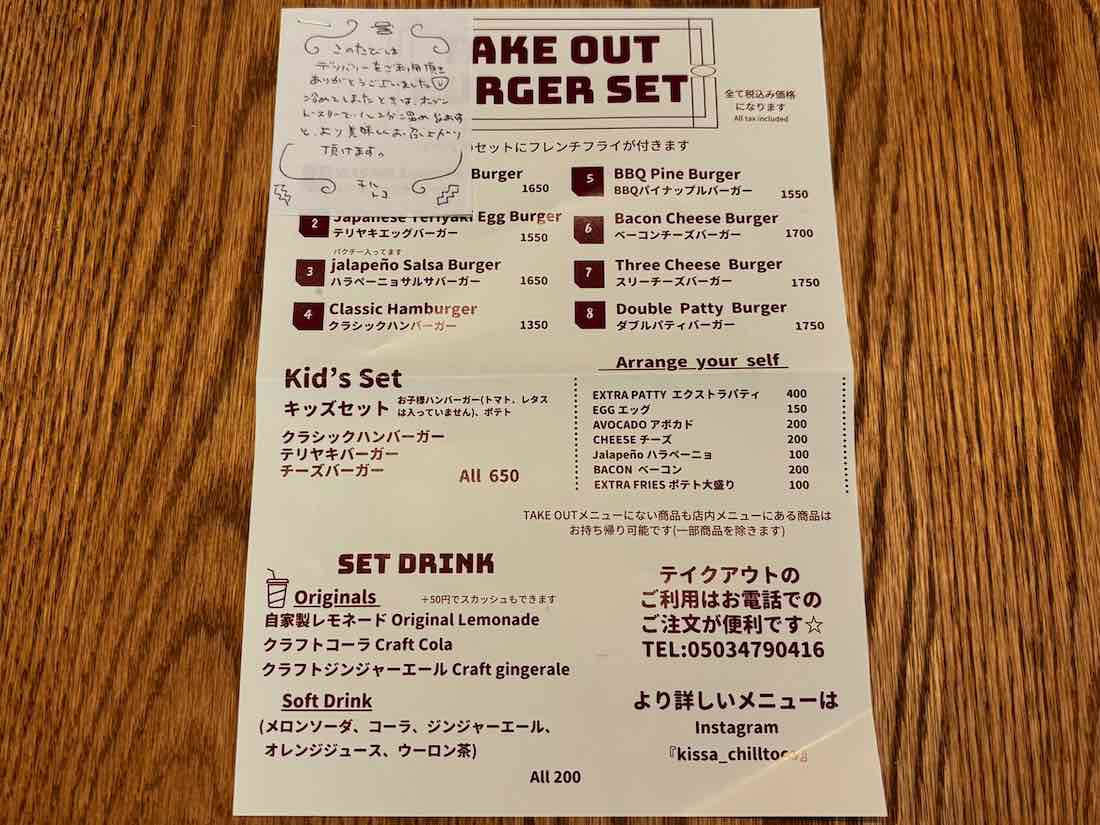 このたびは
デリバリーをご利用頂き
ありがとうございました
冷めてしまったときは、オーブン
トースターで1、2分温め直あすと
と、より美味しくお召し上がり
頂けます。
チル
トコ
AKE OUT
RGER SET
全て税込み価格
になります
All tax included
のセットにフレンチフライが付きます
Burger
1650
2 Japanese Teriyaki Egg Burger
テリヤキエッグバーガー 1550
パクチー入ってます
3 jalapeño Salsa Burger
ハラペーニョサルサバーガー 1650
4 Classic Hamburger
クラシックハンバーガー 1350
5 BBQ Pine Burger
BBQパイナップルバーガー 1550
6 Bacon Cheese Burger
ベーコンチーズバーガー 1700
7 Three Cheese Burger
スリーチーズバーガー 1750
8 Double Patty Burger
ダブルパティバーガー 1750
Kid's Set
キッズセット お子様ハンバーガー(トマト、レタス
は入っていません)、ポテト
クラシックハンバーガー
テリヤキバーガー
チーズバーガー All 650
Arrange your self
EXTRA PATTY エクストラパティ 400
EGG エッグ 150
AVOCADO アボカド 200
CHEESE チーズ 200
Jalapeño ハラペーニョ 100
BACON ベーコン 200
EXTRA FRIES ポテト大盛り 100
TAKE OUTメニューにない商品も店内メニューにある商品は
お持ち帰り可能です(一部商品を除きます)
SET DRINK
Originals +50円でスカッシュもできます
自家製レモネード Original Lemonade
クラフトコーラ Craft Cola
クラフトジンジャーエール Craft gingerale
Soft Drink
(メロンソーダ、コーラ、ジンジャーエール、
オレンジジュース、ウーロン茶)
All 200
テイクアウトの
ご利用はお電話での
ご注文が便利です☆
TEL:05034790416
より詳しいメニューは
Instagram
『kissa_chilltoco』